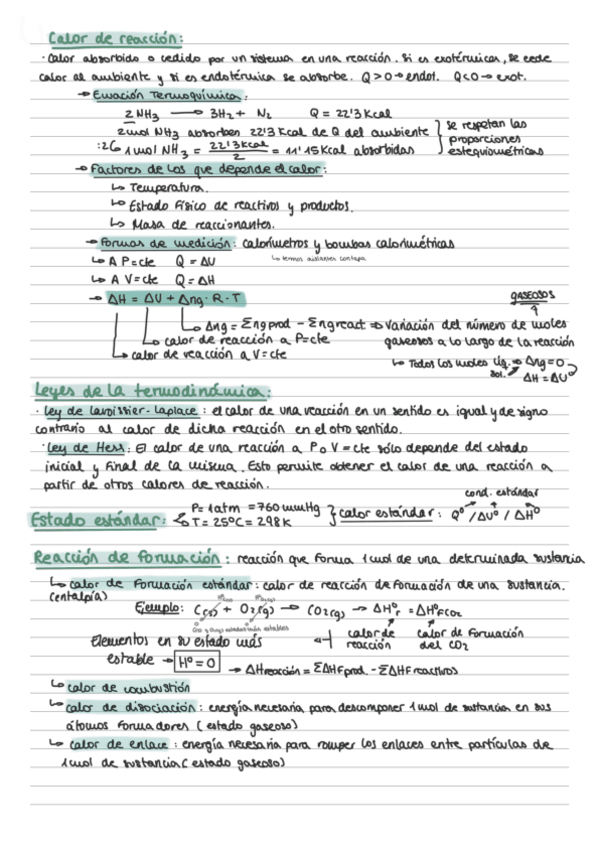 Calor de reacción:
· Calor absorbido o cedido por un sistema en una reacción. Si es exotérmica, se cede
calor al ambiente y si es endotérmica se absorbe. Q > 0 → endot. Q < 0 → exot.
→ Ecuación Termoquímica:
2 NH3 → 3H2 + N2 Q = 22'3 Kcal
2 mol NH3 absorben 22'3 Kcal de Q del ambiente
:2 1 mol NH3 = 22'3 Kcal / 2 = 11'15 Kcal absorbidas
se respetan las
proporciones
estequiométricas
→ Factores de los que depende el calor:
↳ Temperatura.
↳ Estado físico de reactivos y productos.
↳ Masa de reaccionantes.
→ Formas de medición: calorímetros y bombas calorimétricas
↳ termos aislantes con tapa
↳ A P=cte Q = ΔU
↳ A V=cte Q = ΔH
→ ΔH = ΔU + Δng · R · T
GASEOSOS
↳ Δng = Σng prod - Σng react ⇒ Variación del número de moles
gaseosos a lo largo de la reacción
↳ calor de reacción a P=cte
↳ calor de reacción a V=cte
↳ Todos los moles líq. ⇒ Δng = 0
sol. ΔH = ΔU
Leyes de la termodinámica:
· Ley de Lavoissier-Laplace: el calor de una reacción en un sentido es igual y de signo
contrario al calor de dicha reacción en el otro sentido.
· Ley de Hess: El calor de una reacción a P o V = cte sólo depende del estado
inicial y final de la misma. Esto permite obtener el calor de una reacción a
partir de otros calores de reacción.
cond. estándar
Estado estándar: P = 1 atm = 760 mmHg
T = 25ºC = 298 K
calor estándar: Qº / ΔUº / ΔHº
Reacción de formación: reacción que forma 1 mol de una determinada sustancia
↳ calor de formación estándar: calor de reacción de formación de una sustancia.
(entalpía)
Ejemplo: C(s) + O2(g) → CO2(g) → ΔHºr = ΔHºf CO2
calor de reacción
calor de formación del CO2
Elementos en su estado más
estable → Hº = 0
→ ΔH reacción = ΣΔHf prod. - ΣΔHf reactivos
↳ calor de combustión
↳ calor de disociación: energía necesaria para descomponer 1 mol de sustancia en sus
átomos formadores (estado gaseoso)
↳ calor de enlace: energía necesaria para romper los enlaces entre partículas de
1 mol de sustancia (estado gaseoso)